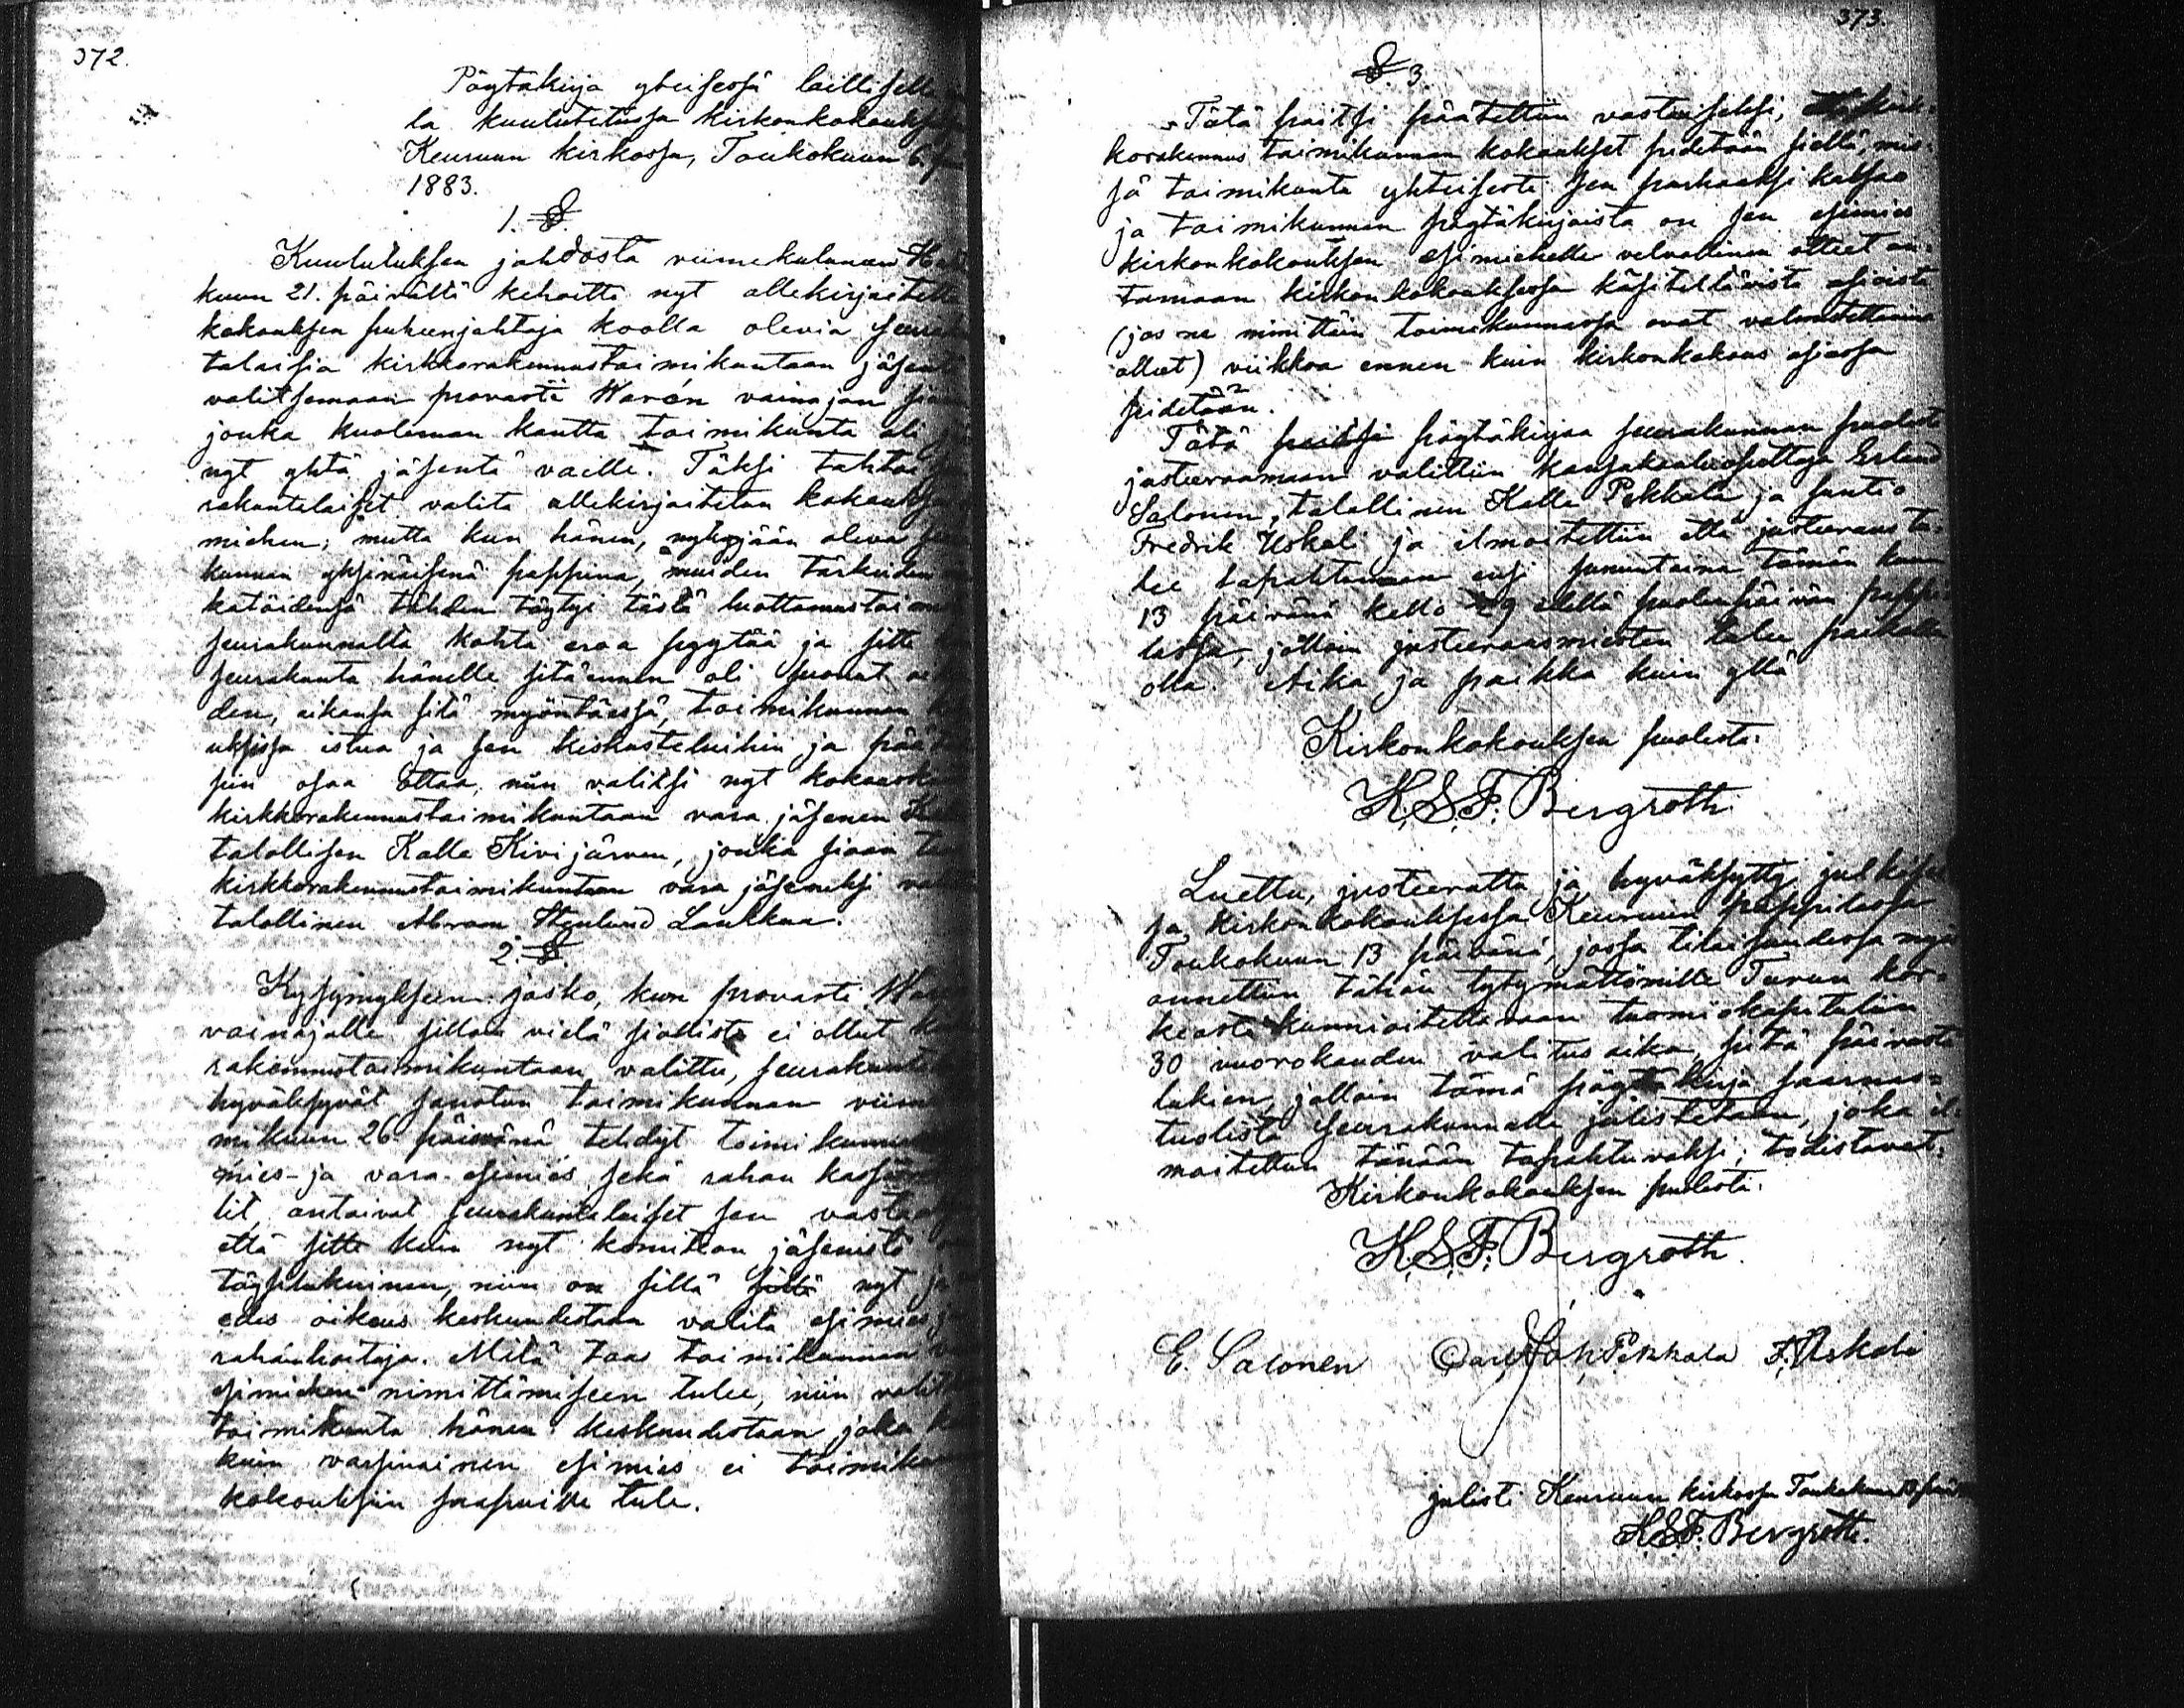 372.
Pöytäkirja yhteisessä laillisell
la kuulutetussa kirkonkokouks
Keuruun kirkossa, Toukokuun 6. p
1883.
1. §.
Kuulutuksen johdosta viimekuluneen Huh
kuun 21. päivältä kehoitti nyt allekirjoitett
kokouksen puheenjohtaja koolla olevia seura
talaisia kirkkorakennustoimikuntaan jäsent
valitsemaan provasti Warén vainajan sia
jonka kuoleman kautta toimikunta oli
nyt yhtä jäsentä vaille. Täksi tahtoi
rakuntalaiset valita allekirjoitetun kokouks
miehen; mutta kun hänen, nykyjään oleva
kunnan yksinäisenä pappina, muiden tärkeiden
katöidensä tähden täytyi tästä luottamustoim
seurakunnalta kohta eroa pyytää ja sitte
seurakunta hänelle sitä ennen oli suonut oi
den, aikansa sitä myöntäessä, toimikunnan
uksissa istua ja sen keskusteluihin ja pää
siin osaa ottaa, niin valitsi nyt kokous
kirkkorakennustoimikuntaan vara jäsenen
talollisen Kalle Kivijärven, jonka siaan
kirkkorakennustoimikuntaan vara jäseneksi val
talollinen Abram Haulund Laukkaa.
2. §.
Kysymykseen: josko, kun provasti War
vainajalle silloin vielä siallista ei ollut
rakennustoimikuntaan valittu, seurakunta
hyväksyvät sanotun toimikunnan viim
mikuun 26. päivänä tehdyt toimikunna
mies- ja vara-esimies, sekä rahan
lit, antoivat seurakuntalaiset sen vasta
että sitte kun nyt komitean jäsenistö
täysilukuinen, niin on sillä sillä nyt
edes oikeus keskuudestaan valita esimies
rahanhoitaja. Mitä taas toimikunnan
esimiehen nimittämiseen tulee, niin valit
toimikunta hänen keskuudestaan, joka
kuin varsinainen esimies ei toimiku
kokouksiin saapuille tule.
373.
§. 3.
Tätä paitsi päätettiin vastaiseksi, kirk-
korakennus toimikunnan kokoukset pidetään siellä, mis-
sä toimikunta yhteisesti sen parhaaksi katsoo
ja toimikunnan pöytäkirjoista on sen esimies
kirkonkokouksen esimiehelle velvollinen otteet an-
tamaan kirkonkokouksessa käsiteltävistä asioista
(jos ne nimittäin toimikunnassa ovat valmistettavina
olleet) viikkoa ennen kuin kirkonkokous asiassa
pidetään.
Tätä paitsi pöytäkirjaa seurakunnan puolesta
justeeraamaan valittiin kansakoulunopettaja Erland
Salonen, talollinen Kalle Pekkala ja suntio
Fredrik Uskali ja ilmoitettiin että justeeraus tu-
lee tapahtumaan ensi sunnuntaina tämän kuun
13 päivänä kello 9 edellä puolenpäivän pappi-
lassa, jolloin justeerausmiesten tulee paikalla
olla. Aika ja paikka kuin yllä
Kirkonkokouksen puolesta:
K.S.F. Bergroth
Luettu, justeerattu ja hyväksytty julkises
sa kirkonkokouksessa Keuruun pappilassa
Toukokuun 13 päivänä, jossa tilaisuudessa myös
annettiin tähän tytymättömille Turun kor-
keasti kunnioitettavaan tuomiokapituliin
30 vuorokauden valitus aika, siitä päivästä
lukien, jolloin tämä pöytäkirja saarnas-
tuolista seurakunnalle julistetaan, joka il-
moitettiin tänään tapahtuvaksi; todistavat:
Kirkonkokouksen puolesta:
K.S.F. Bergroth.
E. Salonen Carl Joh. Pekkala F. Uskali
julisti Keuruun kirkossa Toukokuun 13 päiv
K.S.F. Bergroth.